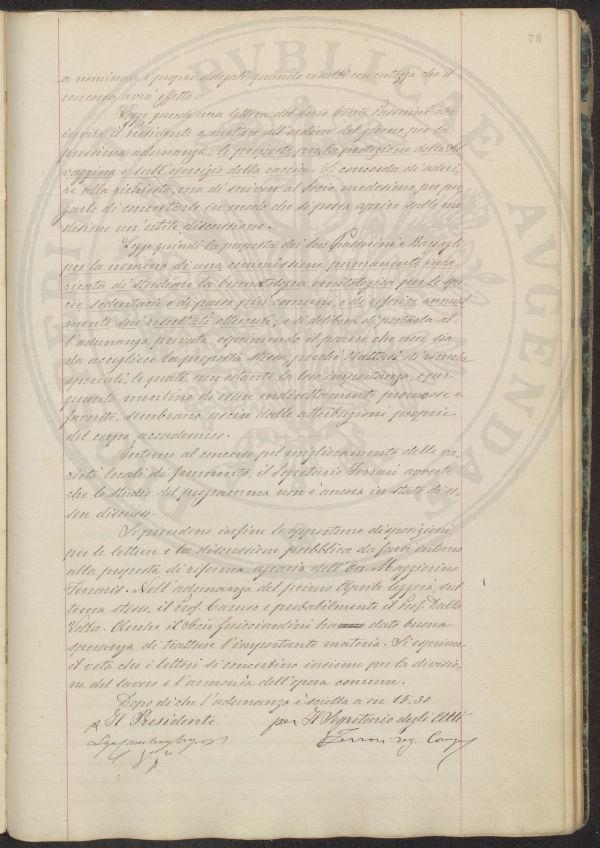 78
a nominare i propri delegati, quando risulti con certezza che il
concorso avrà effetto.
Legge quindi una lettera del socio Conte Passerini che
invita il Presidente a mettere all'ordine del giorno per la
prossima adunanza, le proposte per la protezione della sel
vaggina e sull'esercizio della caccia. Si concorda di aderi
re alla richiesta, ma di scrivere al Socio medesimo per pre
garlo di concretarle in modo che si possa aprire sulle me
desime un'utile discussione.
Legge quindi la proposta dei Soci Passerini e
per la nomina di una commissione permanente inca
ricata di studiare la ornitologica per le spe
cie sedentarie e di passo più comuni, e di riferire annual
mente sui resultati ottenuti, e si delibera di portarla al
l'adunanza privata, esprimendo il parere che non sia
da accogliere la proposta stessa, perchè trattasi di ricerche
speciali, le quali, non ostante la loro importanza, e per
quanto meritino di esser indirettamente promosse e
favorite, sembrano uscire dalle attribuzioni proprie
del corpo accademico.
Intorno al concorso pel miglioramento delle va
rietà locali di frumento, il Segretario Ferrari avverte
che lo studio del programma non è ancora in stato di es
sere discusso.
Si prendono infine le opportune disposizioni
per le letture e la discussione pubblica da farsi intorno
alla proposta di riforma agraria dell'On. Maggiorino
Ferraris. Nell'adunanza del primo Aprile leggerà, sul
tema stesso, il Prof. Caruso e probabilmente il Prof. Dalla
Volta. Anche il Socio Guicciardini ha dato buona
speranza di trattare l'importante materia. Si esprime
il voto che i lettori si concertino insieme per la divisio
ne del lavoro e l'armonia dell'opera comune.
Dopo di che l'adunanza è sciolta a ore 15.30
Il Presidente per Il Segretario degli Atti